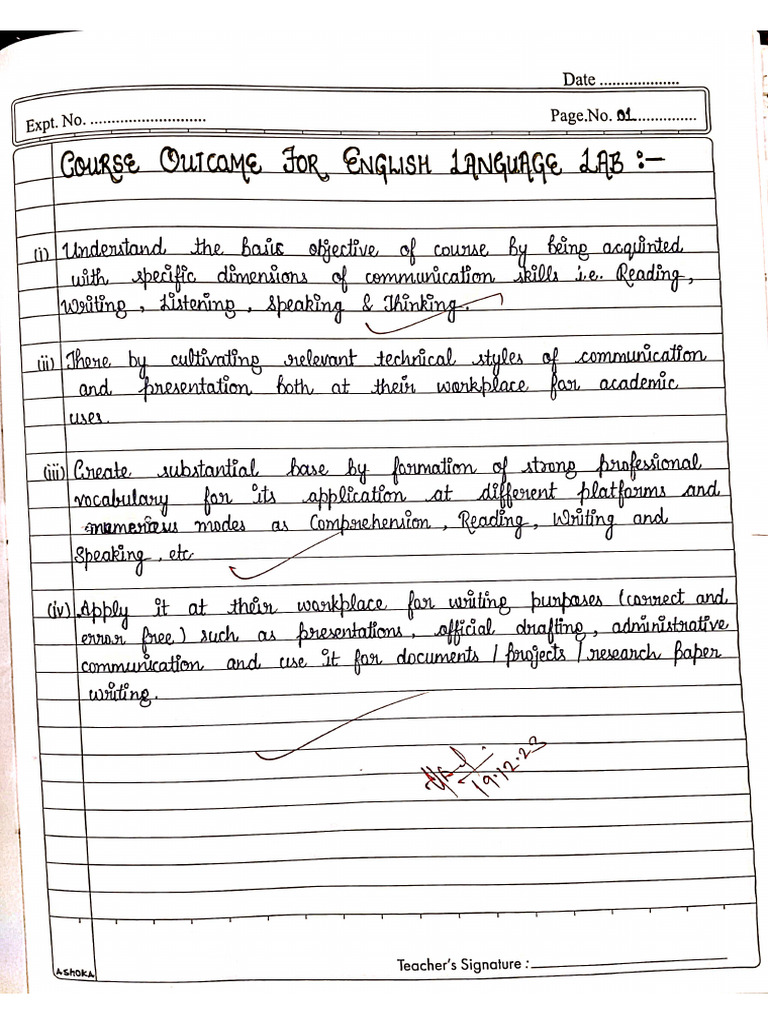 Date ...................
Expt. No. ............................
Page.No. 01..............
COURSE OUTCOME FOR ENGLISH LANGUAGE LAB :-
(i) Understand the basic objective of course by being acquinted
with specific dimensions of communication skills i.e. Reading,
Writing, Listening, Speaking & Thinking.
(ii) There by cultivating relevant technical styles of communication
and presentation both at their workplace for academic
uses.
(iii) Create substantial base by formation of strong professional
vocabulary for its application at different platforms and
numerious modes as Comprehension, Reading, Writing and
Speaking, etc
(iv) Apply it at their workplace for writing purposes (correct and
error free) such as presentations, official drafting, administrative
communication and use it for documents / projects / research paper
writing.
19.12.23
ASHOKA
Teacher's Signature :